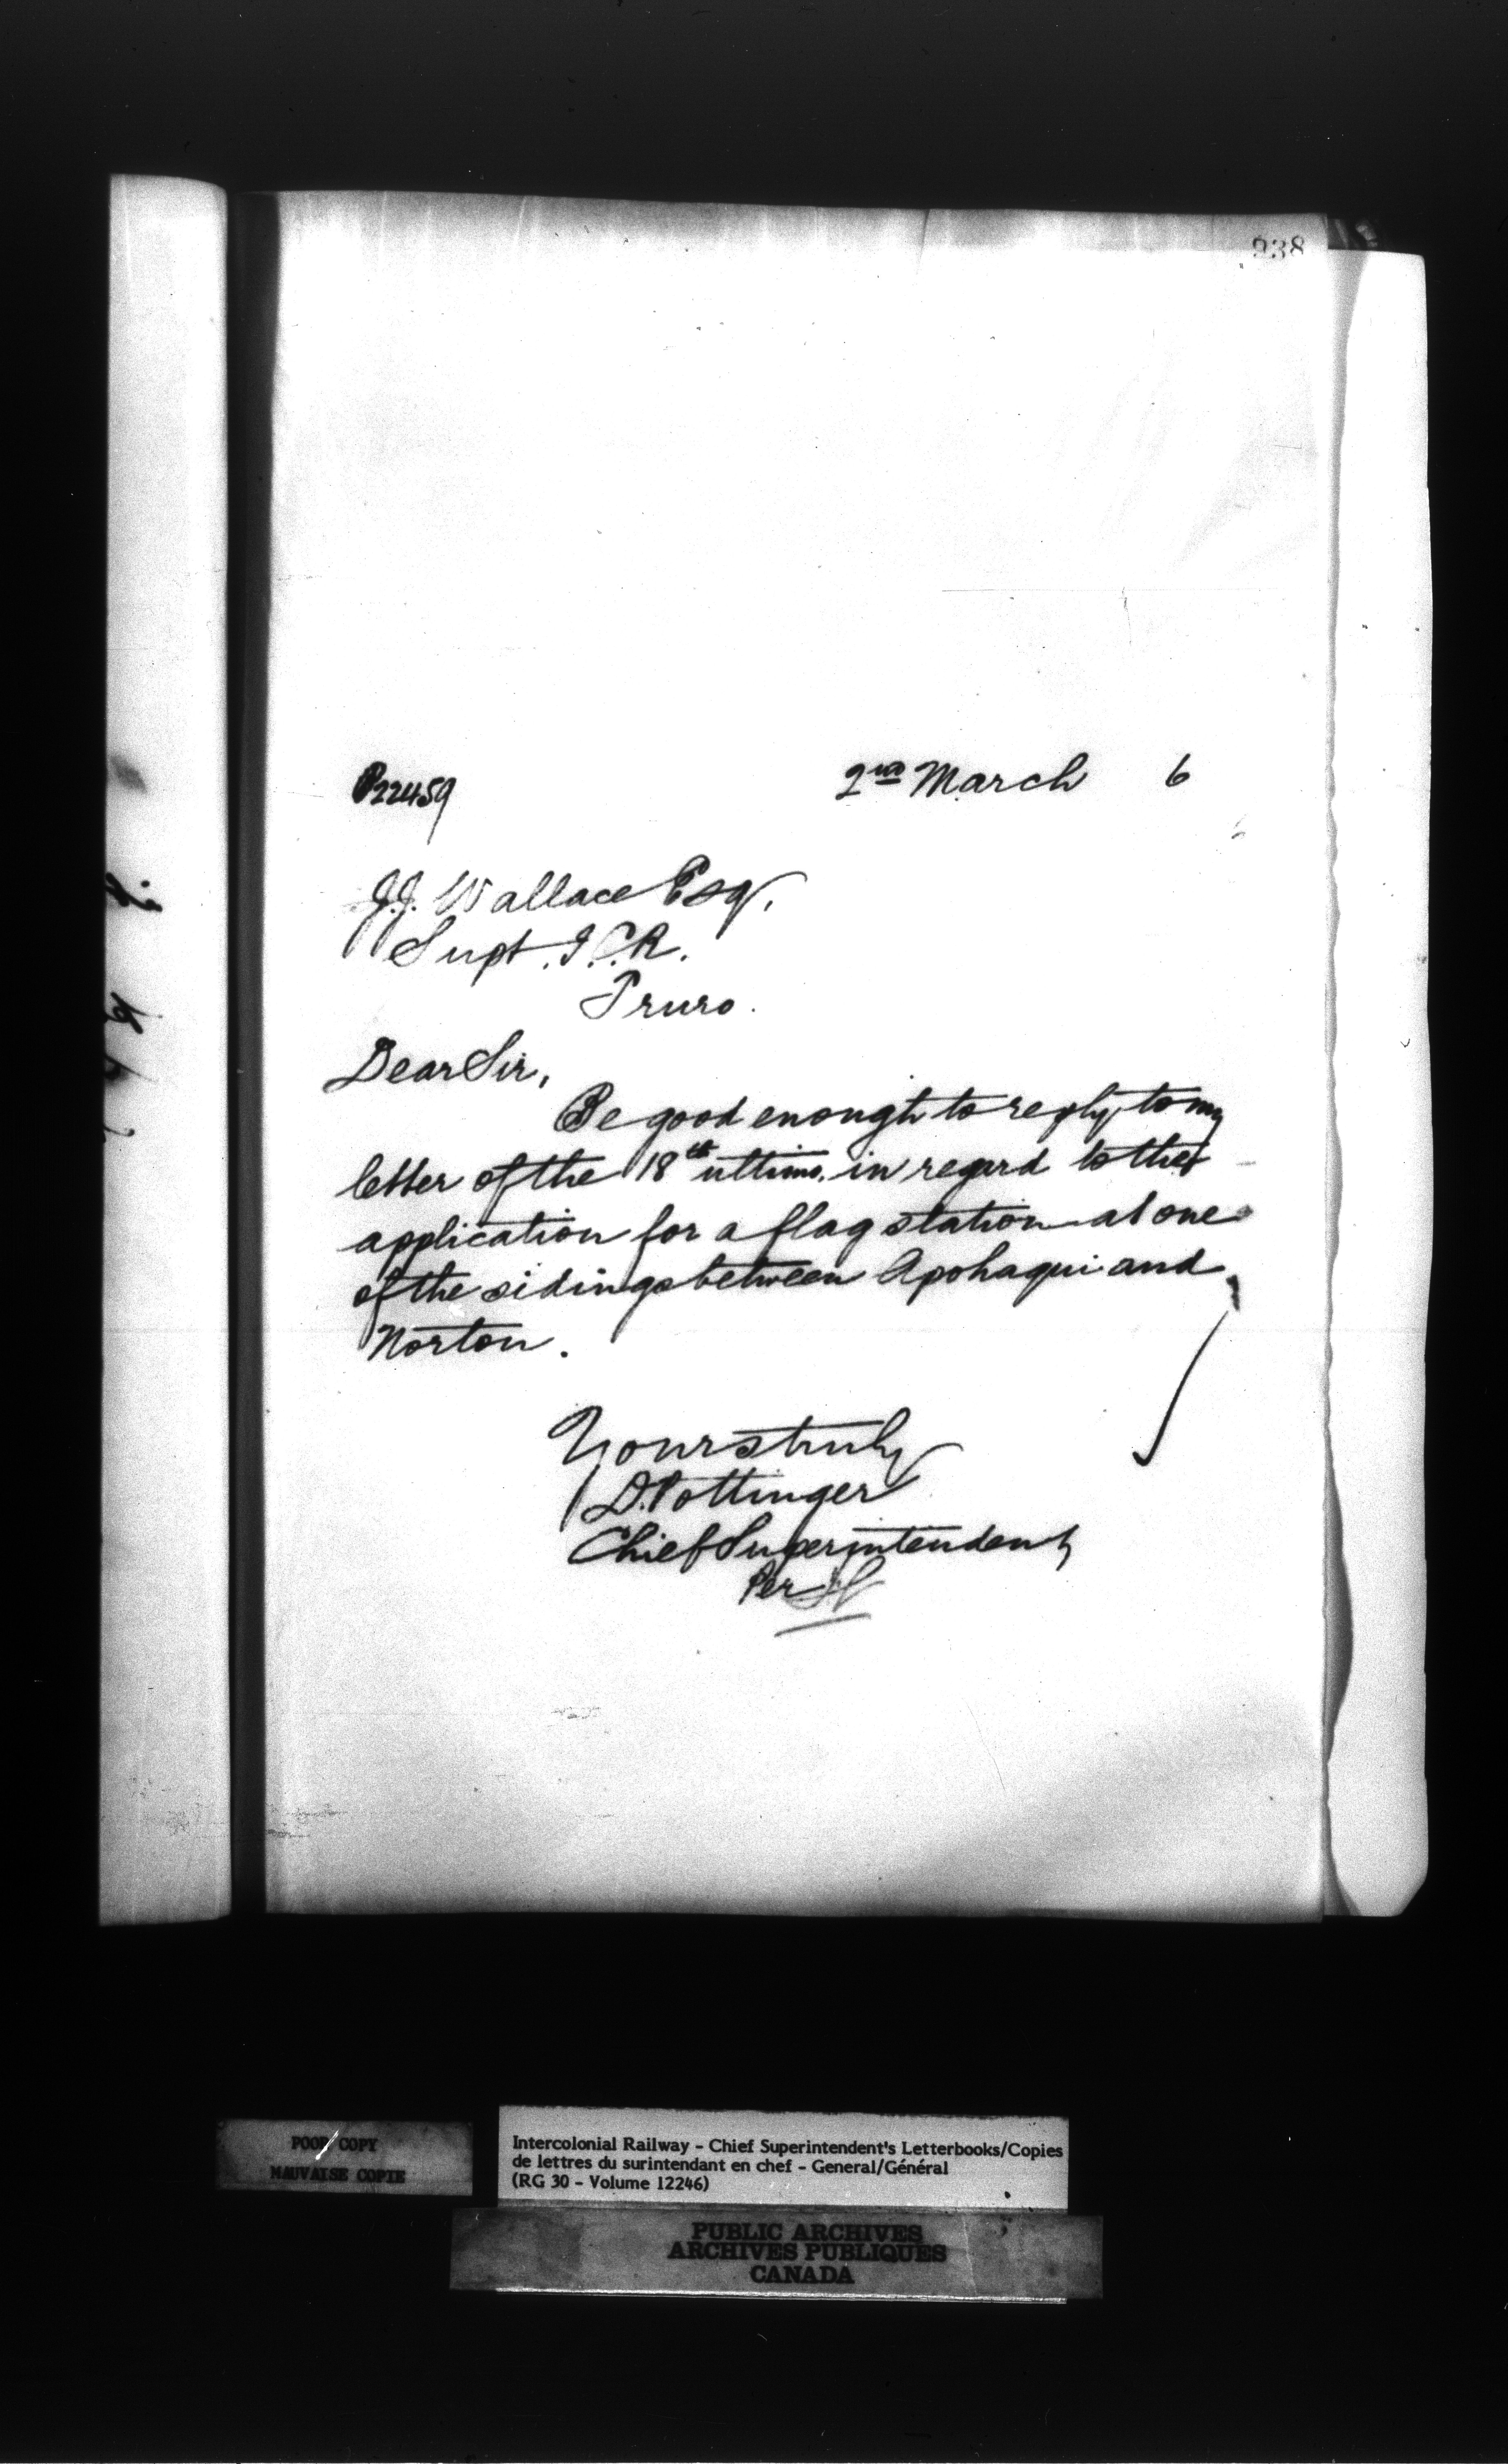 238
P22459
2nd March 6
J.J. Wallace Esq.
Supt. I.C.R.
Truro.
Dear Sir,
Be good enough to reply to my
letter of the 18th ultimo. in regard to the
application for a flag station at one
of the sidings between Apohaqui and
Norton.
Yours truly
D. Pottinger
Chief Superintendent
Per
POOR COPY
MAUVAISE COPIE
Intercolonial Railway - Chief Superintendent's Letterbooks/Copies
de lettres du surintendant en chef - General/Général
(RG 30 - Volume 12246)
PUBLIC ARCHIVES
ARCHIVES PUBLIQUES
CANADA